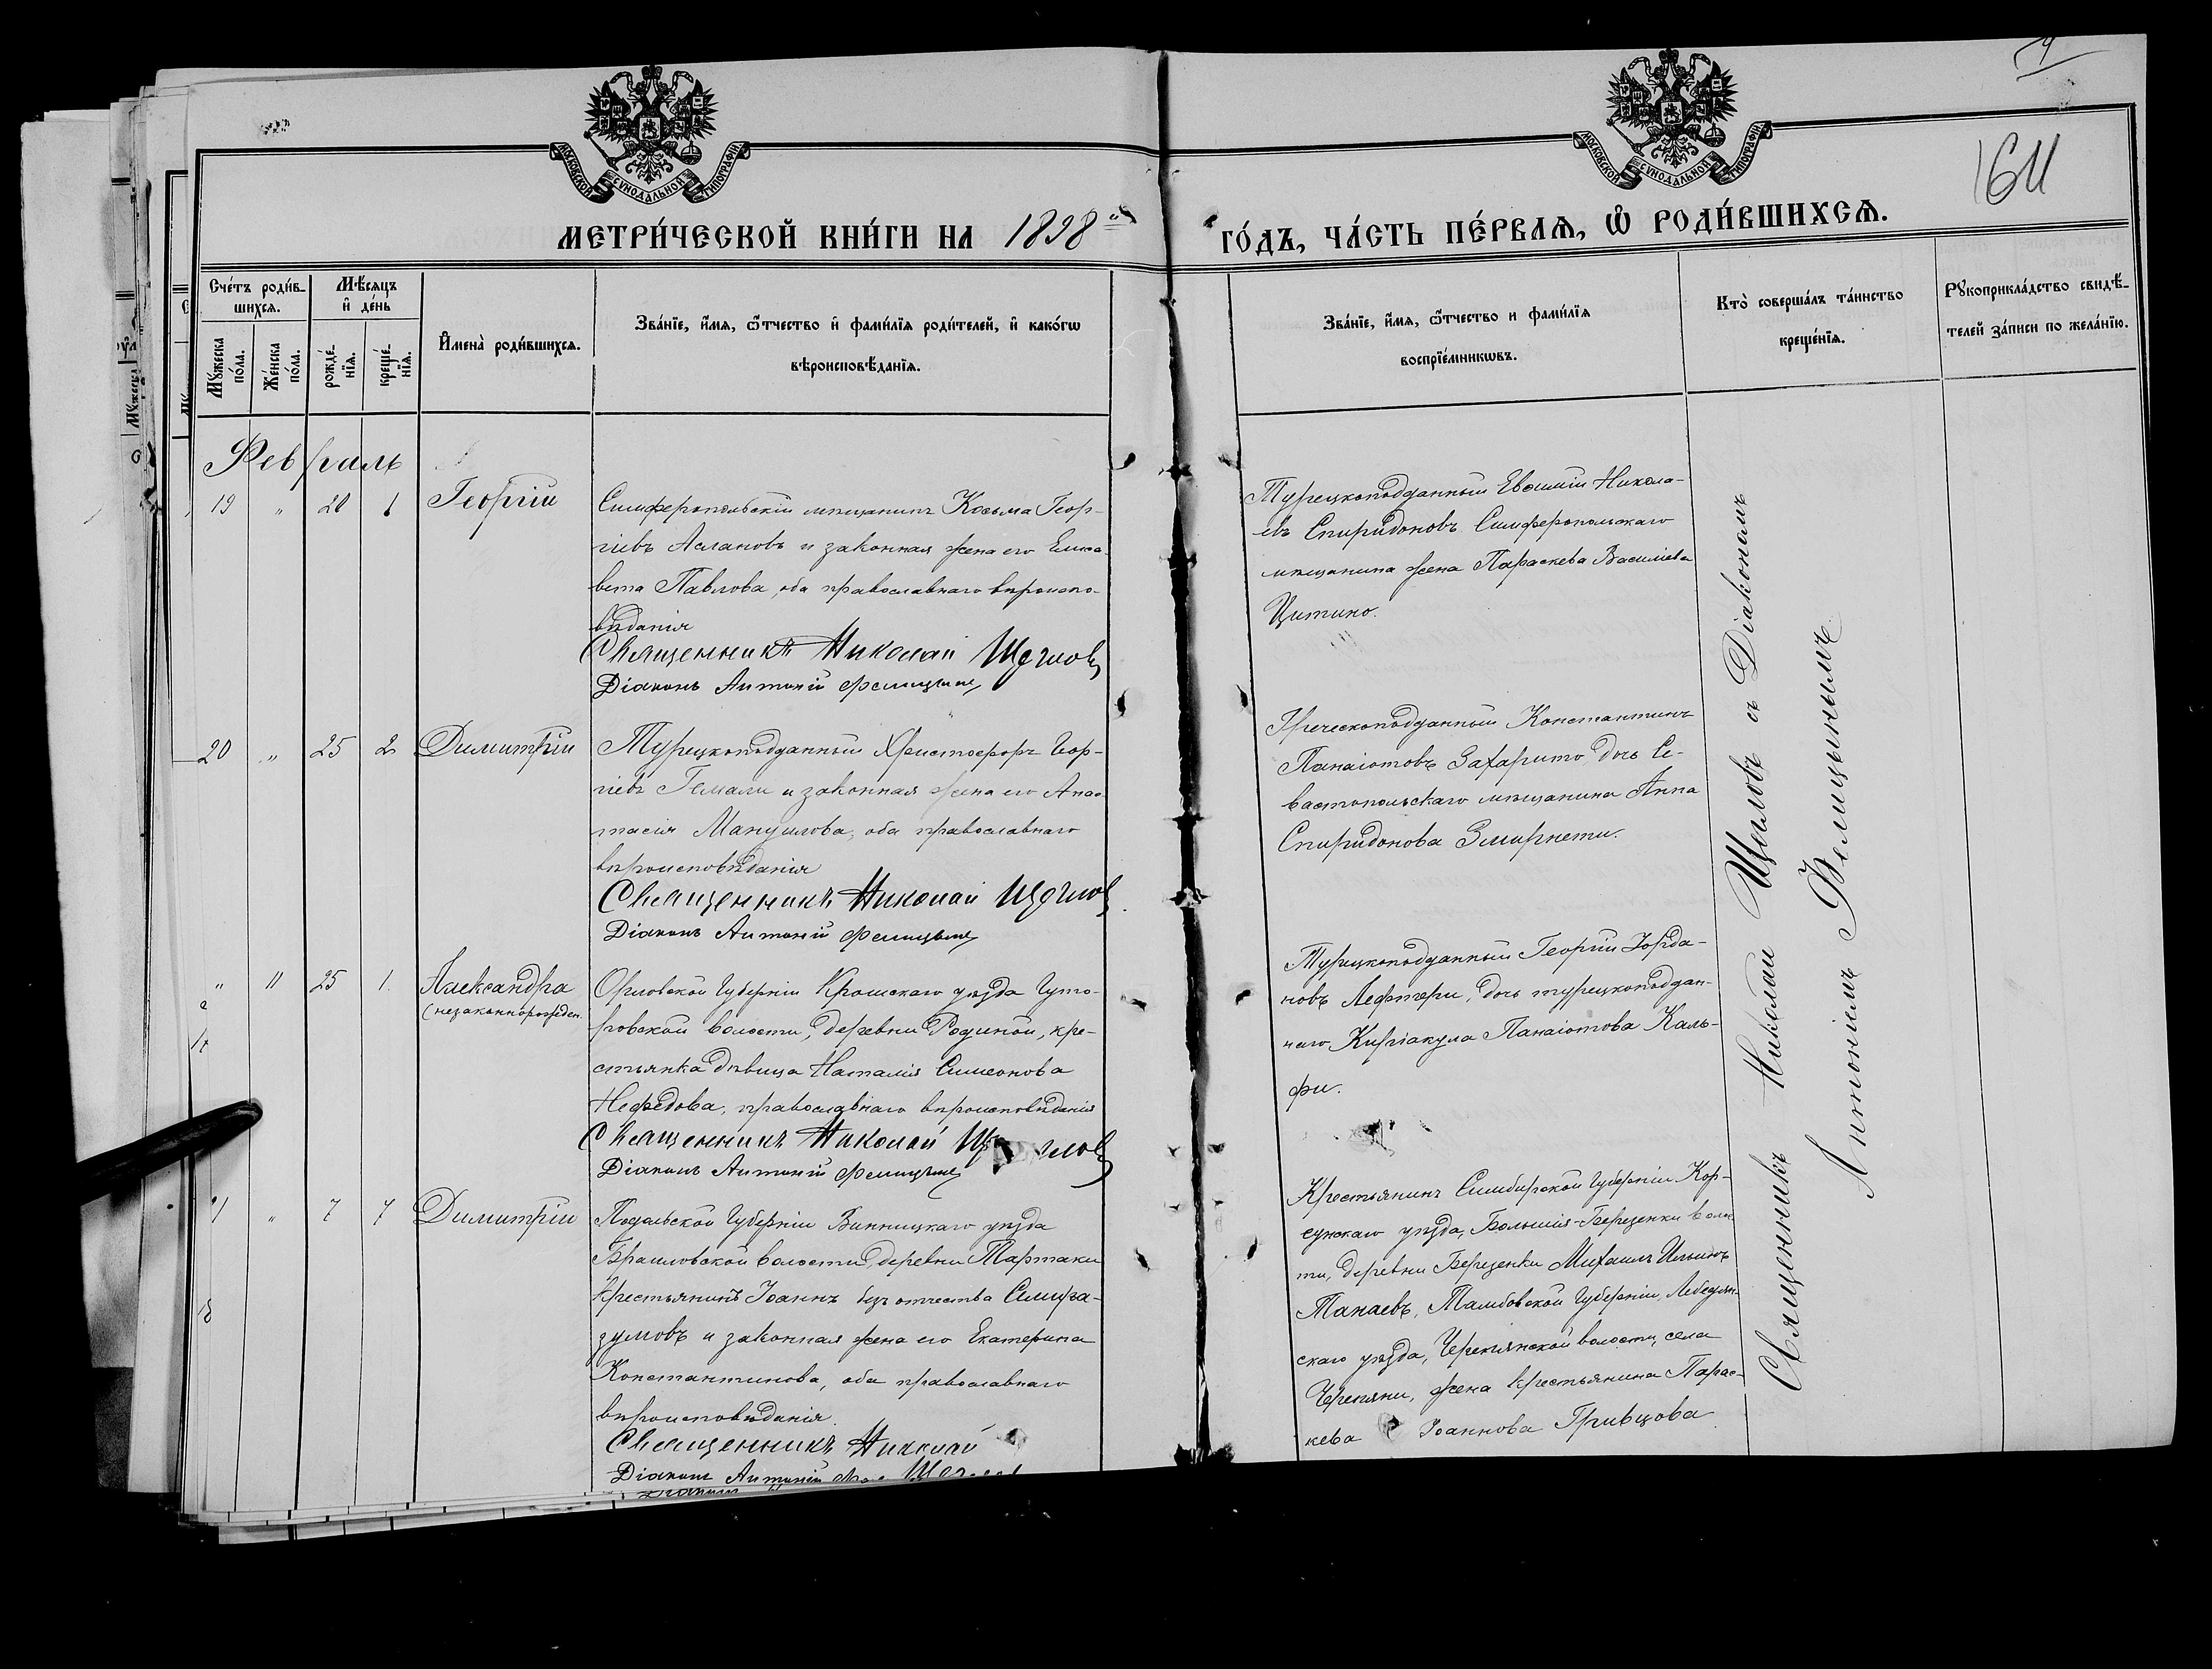 4
1611
МОСКОВСКОЙ СУНОДАЛЬНОЙ ТИПОГРАФІИ
МОСКОВСКОЙ СУНОДАЛЬНОЙ ТИПОГРАФІИ
МЕТРИ́ЧЕСКОЙ КНИ́ГИ НА 1898 й
ГО́ДЪ, ЧА́СТЬ ПЕ́РВАѦ, Ѡ҆ РОДИ́ВШИХСѦ.
Сче́тъ роди́в-
шихсѧ.
Мꙋ́жеска
по́ла.
Же́нска
по́ла.
Мѣ́сѧцъ
и҆ де́нь
рожде́-
нїѧ.
креще́-
нїѧ.
И҆мена̀ роди́вшихсѧ.
Зва́нїе, и҆́мѧ, ѻ҆́тчество и҆ фами́лїѧ роди́телей, и҆ како́гѡ
вѣроисповѣ́данїѧ.
Зва́нїе, и҆́мѧ, ѻ҆́тчество и фами́лїѧ
воспрїе́мникѡвъ.
Кто̀ соверша́лъ та́инство
креще́нїѧ.
Рꙋкоприкла́дство свидѣ́-
телей за́писи по жела́нїю.
Февраль
19 " 20 1 Георгій
Симферопольскій мѣщанинъ Косьма Геор-
гіевъ Аслановъ и законная жена его Елиса-
вета Павлова, оба православнаго вѣроиспо-
вѣданія
Священникъ Николай Щегловъ
Діаконъ Антоній Фелицынъ
Турецкоподданный Евѳимій Никола-
евъ Спиридоновъ Симферопольскаго
мѣщанина жена Параскева Васильева
Цитино.
20 " 25 2 Димитрій
Турецкоподданный Христофоръ Геор-
гіевъ Гемали и законная жена его Анас-
тасія Мануилова, оба православнаго
вѣроисповѣданія
Священникъ Николай Щегловъ
Діаконъ Антоній Фелицынъ
Греческоподданный Константинъ
Панаіотовъ Захарито, дочь Се-
вастопольскаго мѣщанина Анна
Спиридонова Змирнети.
" 11 25 1 Александра
(незаконнорожден.
Орловской Губерніи Кромскаго уѣзда Гуто-
ровской волости, деревни Родиной, кре-
стьянка дѣвица Наталія Симеонова
Нефедова, православнаго вѣроисповѣданія
Священникъ Николай Щегловъ
Діаконъ Антоній Фелицынъ
Турецкоподданный Георгій Іорда-
новъ Лефтери, дочь турецкоподдан-
наго Киріакула Панаіотова Каль-
фи.
21 " 7 7 Димитрій
Подольской Губерніи Винницкаго уѣзда
Браиловской волости, деревни Тартаки
крестьянинъ Іоаннъ безъ отчества Семира-
зумовъ и законная жена его Екатерина
Константинова, оба православнаго
вѣроисповѣданія.
Священникъ Николай
Діаконъ Антоній Щегловъ
Крестьянинъ Симбирской Губерніи Кор-
сунскаго уѣзда, Большія-Березенки волос-
ти, деревни Березенки Михаилъ Ильинъ
Танаевъ, Тамбовской Губерніи, Лебедян-
скаго уѣзда, Черепянской волости, села
Черепяни, жена крестьянина Парас-
кева Іоаннова Гривцова
Священникъ Николай Щегловъ съ Діакономъ
Антоніемъ Фелицынымъ.